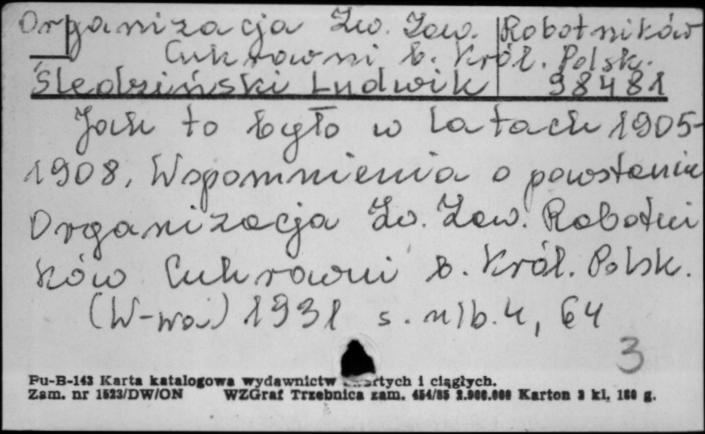 Organizacja Zw. Zaw. Robotników
Cukrowni b. Król. Polsk.
Śledziński Ludwik 98481
Jak to było w latach 1905-
1908. Wspomnienia o powstaniu
Organizacja Zw. Zaw. Robotni
ków Cukrowni b. Król. Polsk.
(W-wa) 1931 s. nlb. 4, 64
3
Pu-B-143 Karta katalogowa wydawnictw zwartych i ciągłych.
Zam. nr 1523/DW/ON WZGraf Trzebnica zam. 454/85 2.000.000 Karton 3 kl, 180 g.